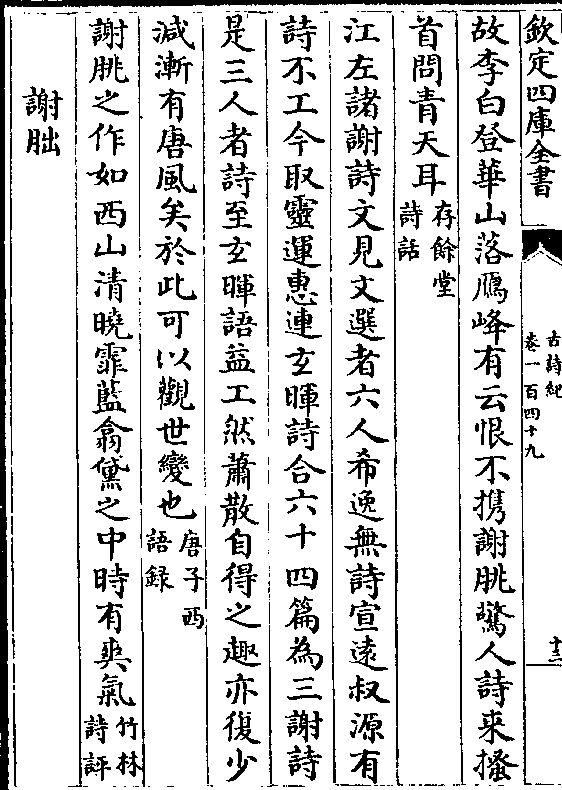 欽定四庫全書
古詩紀
卷一百四十九
十三
故李白登華山落鴈峰有云恨不携謝朓驚人詩来搔
首問青天耳存餘堂
詩話
江左諸謝詩文見文選者六人希逸無詩宣遠叔源有
詩不工今取靈運惠連玄暉詩合六十四篇為三謝詩
是三人者詩至玄暉語益工然蕭散自得之趣亦復少
減漸有唐風矣於此可以觀世變也唐子西
語録
謝朓之作如西山清曉霏藍翕黛之中時有爽氣竹林
詩評
謝朏